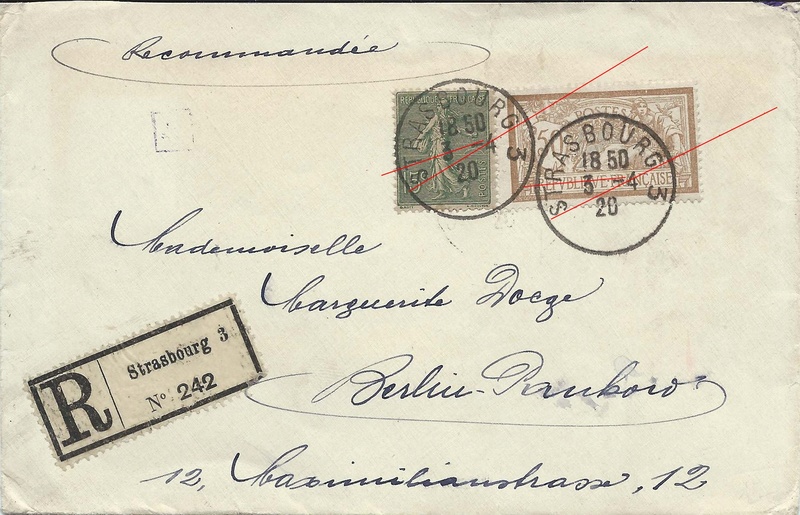 Recommandée
REPUBLIQUE FRANÇAISE
POSTES
STRASBOURG 3
18 50
3 -4
20
50
POSTES
REPUBLIQUE FRANÇAISE
STRASBOURG 3
18 50
3 -4
20
Mademoiselle
Marguerite Docge
Berlin-Pankow
12, Maximilianstrasse, 12
R
Strasbourg 3
No 242